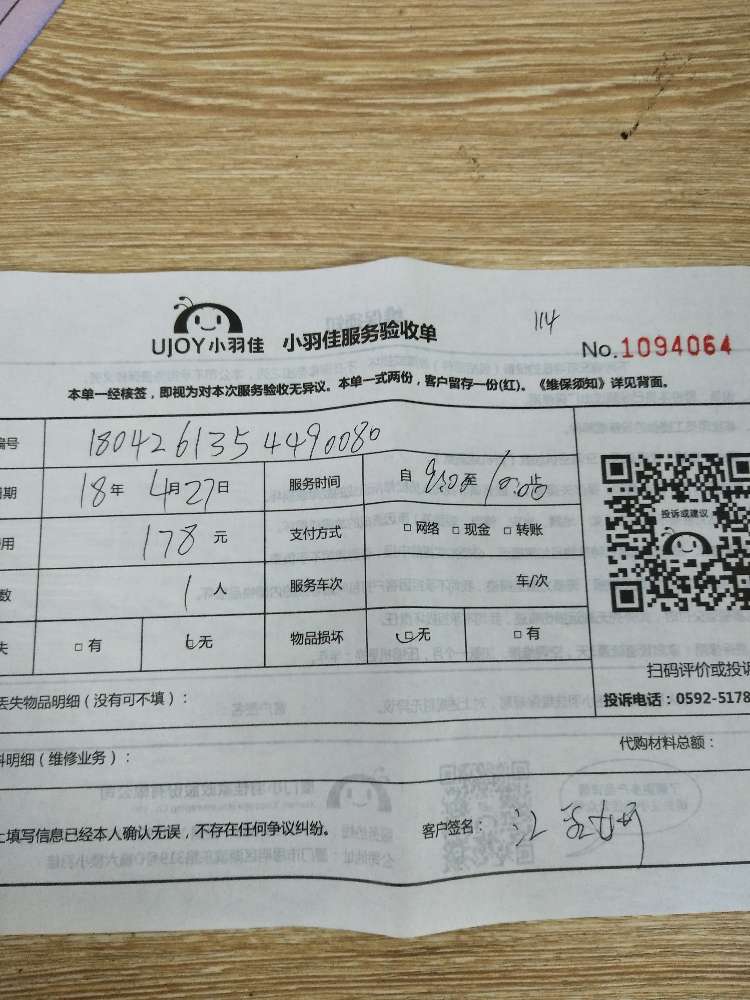 114
UJOY小羽佳 小羽佳服务验收单
No.1094064
本单一经核签，即视为对本次服务验收无异议。本单一式两份，客户留存一份(红)。《维保须知》详见背面。
编号 1804261354490080
期 18年 4月27日 服务时间 自 9:00 至 10:00 止
用 178 元 支付方式 □ 网络 □ 现金 □ 转账
数 1 人 服务车次 车/次
失 □ 有 □ 无 物品损坏 □ 无 □ 有
投诉或建议
扫码评价或投诉
投诉电话：0592-5178
丢失物品明细（没有可不填）：
料明细（维修业务）：
代购材料总额：
上填写信息已经本人确认无误，不存在任何争议纠纷。
客户签名： 江